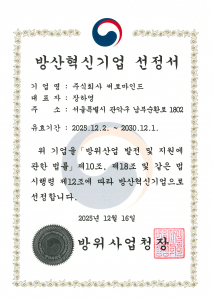 방산혁신기업 선정서
기 업 명 : 주식회사 버로마인드
대 표 자 : 장하영
주 소 : 서울특별시 관악구 남부순환로 1802
유효기간 : 2025.12.2. ~ 2030.12.1.
위 기업을 「방위산업 발전 및 지원에
관한 법률」 제10조, 제18조 및 같은 법
시행령 제12조에 따라 방산혁신기업으로
선정합니다.
2025년 12월 16일
방위사업청장